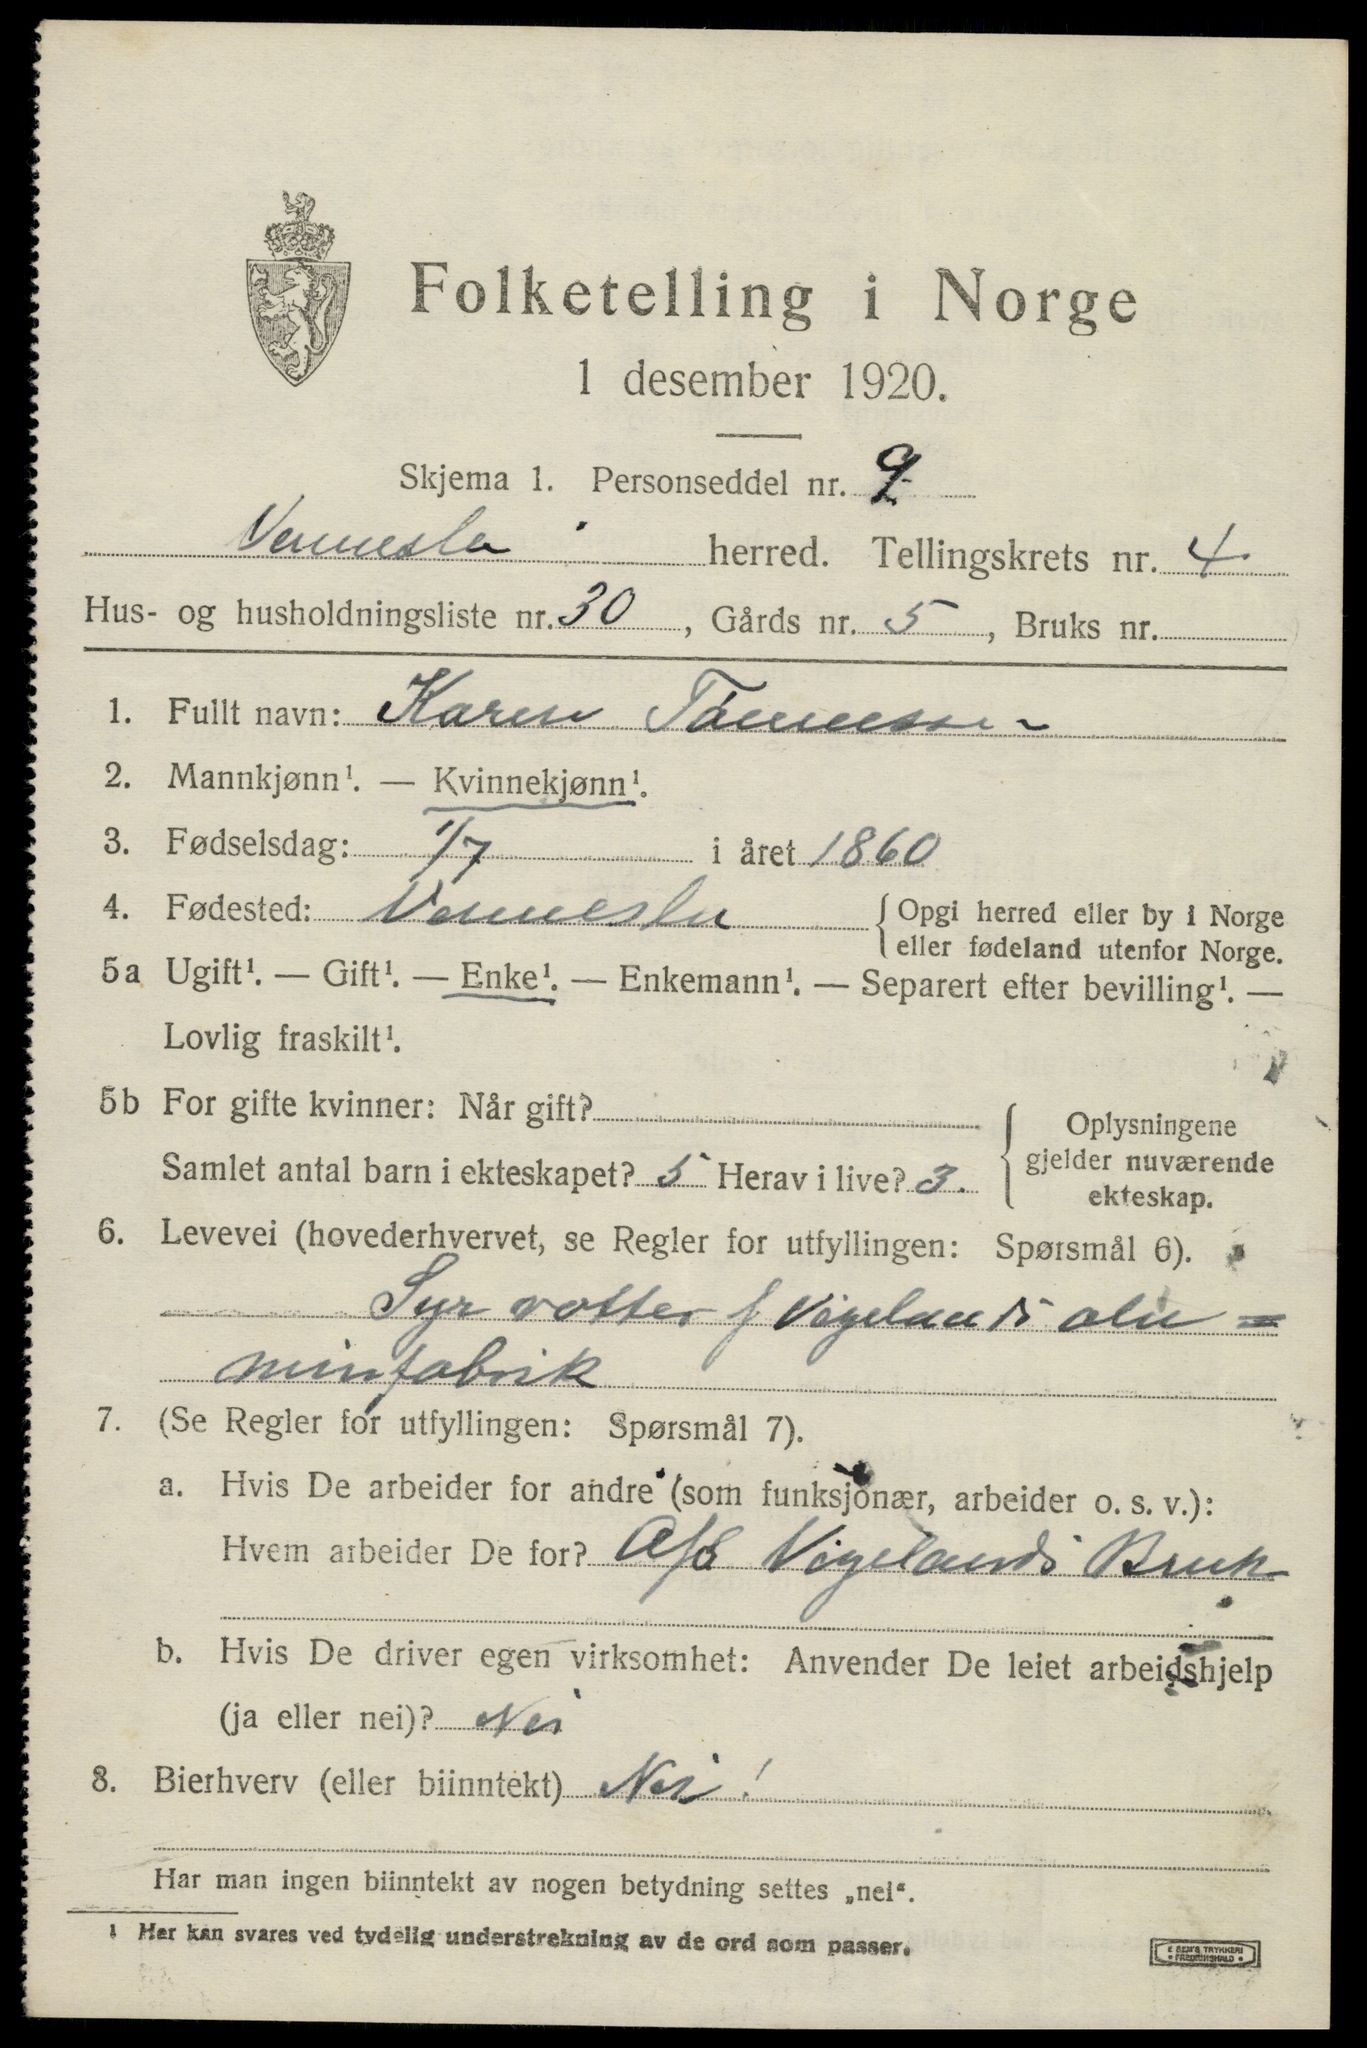 Folketelling i Norge
1 desember 1920.
Skjema 1. Personseddel nr. 2
Vennesla herred. Tellingskrets nr. 4
Hus- og husholdningsliste nr. 30, Gårds nr. 5, Bruks nr.
1. Fullt navn: Karen Tønnessen
2. Mannkjønn¹. — Kvinnekjønn¹.
3. Fødselsdag: 1/7 i året 1860
4. Fødested: Vennesla { Opgi herred eller by i Norge
eller fødeland utenfor Norge.
5a Ugift¹. — Gift¹. — Enke¹. — Enkemann¹. — Separert efter bevilling¹. —
Lovlig fraskilt¹.
5b For gifte kvinner: Når gift?
Samlet antal barn i ekteskapet? 5 Herav i live? 3.
{ Oplysningene
gjelder nuværende
ekteskap.
6. Levevei (hovederhvervet, se Regler for utfyllingen: Spørsmål 6).
Syr votter f Vigelands alu=
minfabrik
7. (Se Regler for utfyllingen: Spørsmål 7).
a. Hvis De arbeider for andre (som funksjonær, arbeider o. s. v.):
Hvem arbeider De for? A/S Vigelands Bruk
b. Hvis De driver egen virksomhet: Anvender De leiet arbeidshjelp
(ja eller nei)? Nei
8. Bierhverv (eller biinntekt) Nei!
Har man ingen biinntekt av nogen betydning settes „nei".
¹ Her kan svares ved tydelig understrekning av de ord som passer.
E SEM'S TRYKKERI
• FREDRIKSHALD •